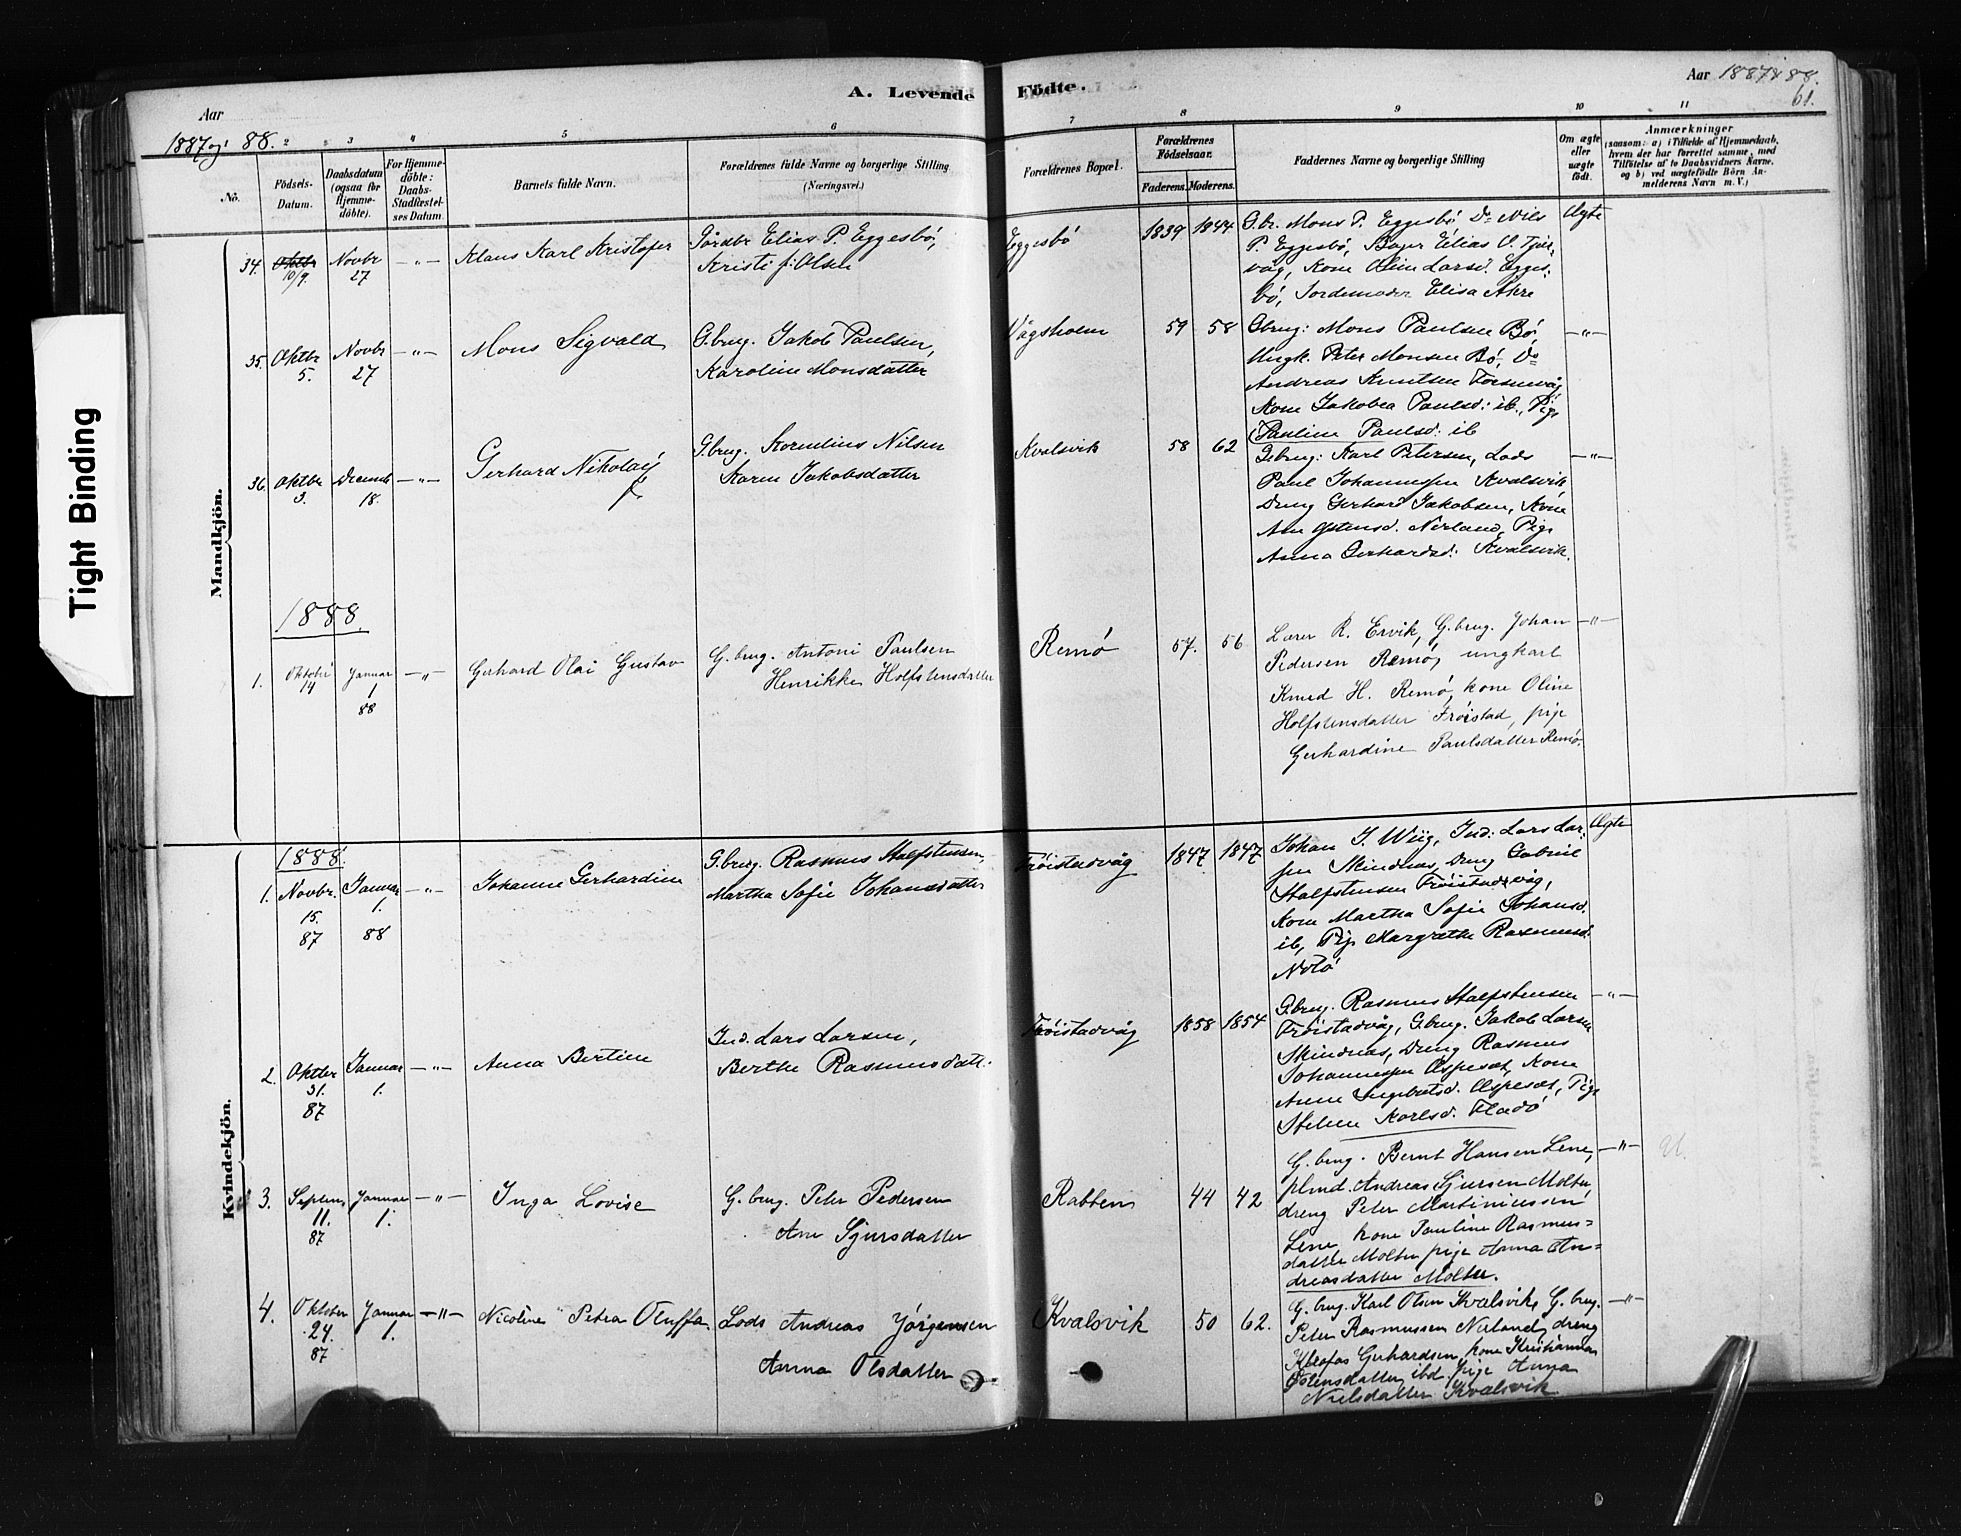 Tight Binding
Aar
1887 og 88.
A. Levende Födte.
Aar 1887 & 88.
61.
2 3 4 5 6 7 8 9 10 11
No.
Födsels-Datum.
Daabsdatum (ogsaa for Hjemme-döbte).
For Hjemme-döbte: Daabs-Stadfæstel-ses Datum.
Barnets fulde Navn.
Forældrenes fulde Navne og borgerlige Stilling.
(Næringsvei.)
Forældrenes Bopæl.
Forældrenes Födselsaar.
Faderens. Moderens.
Faddernes Navne og borgerlige Stilling
Om ægte eller uægte födt.
Anmærkninger
(saasom: a) i Tilfælde af Hjemmedaab,
hvem der har forrettet samme, med
Tilföielse af to Daabsvidners Navne,
og b) ved uægtefödte Börn An-
melderens Navn m. V.)
Mandkjön.
34. Oktbr 10/9. Novbr 27 — „ — Klaus Karl Kristofer
Gårdbr Elias P. Eggesbö,
Kristi Olsen
Eggesbö 1839 1844
G.br. Mons P. Eggesbö, Do Nils
P. Eggesbö, Elias O. Tjør-
våg, Kone Oline Larsd. Egges-
bö, Jordemoder Elisa Akre
Ægte
35. Oktbr 5. Novbr 27 — „ — Mons Sigvald
G.brug. Jakob Paulsen,
Karoline Monsdatter
Vågsholm 59 58
Gbrug: Mons Paulsen Bö,
Ungk. Peter Monsen Bö, Do
Andreas Knutsen
Kone Jakobea Paulsd: ib., Pige
Pauline Paulsd: ib
— „ —
36. Oktbr 3. Decemb 18. — „ — Gerhard Nikolay
G.brug. Kornelius Nilsen
Karen Jakobsdatter
Kvalsvik 58 62
Gbrug: Karl Petersen, Lods
Paul Johannessen Kvalsvik
Dreng Gerhard Jakobsen, Kone
Ane Nerland, Pige
Anna Gerhardsd: Kvalsvik.
— „ —
1888.
1. Oktobr 14 Januar 1 88 — „ — Gerhard Olai Gustav
G. brug. Antoni Paulsen
Henrikke Holfstensdatter
Remö 57. 56
Lærer R. Ervik, G.brug. Johan
Pedersen Remö, ungkarl
Knud H. Remö, kone Oline
Holfstensdatter Fröistad, pige
Gerhardine Paulsdatter Remö.
— „ —
Kvindekjön.
1888.
1. Novbr. 15. 87 Januar 1. 88 — „ — Johanne Gerhardine
G.brug. Rasmus Halfstensen,
Martha Sofie Johansdatter
Fröistadvåg 1847 1847
Johan J. Wiig, Ind: Lars Lar-
sen Skindnas, Dreng Gabriel
Halfstensen Fröistadvåg,
Kone Martha Sofie Johansd.
ib, Pige Margrethe Rasmusd:
Notö
Ægte
2. Oktbr 31. 87 Januar 1. — „ — Anna Bertine
Ind. Lars Larsen,
Berthe Rasmusdatt.
Fröistadvåg 1858 1854
G.brug. Rasmus Halfstensen
Fröistadvåg, G.brug. Jakob Larsen
Skindnas, Dreng Rasmus
Johannessen Aspesæt, Kone
Anne Ingebrtsd. Aspesæt, Pige
Karlsd. Fladö
— „ —
3. Septem. 11. 87 Januar 1. — „ — Inga Lovise
G. brug. Peter Pedersen
Ane Sjursdatter
Rabben 44 42
G. brug. Bernt Hansen Lene,
plmd. Andreas Sjursen Moltu
dreng Peter Martinussen
Lene, kone Pauline Rasmus=
datter Moltu pige Anna An=
dreasdatter Moltu.
— „ —
4. Oktober 24. 87 Januar 1. — „ — Nicoline Petra Oluffa.
Lods Andreas Jörgensen
Anna Olsdatter
Kvalsvik 50 62.
G. brug. Karl Olsen Kvalsvik, G. brug.
Peter Rasmussen Nerland, dreng
Kleofas Gerhardsen, kone Kristianna
ibd, pige Anna
Nielsdatter Kvalsvik
— „ —